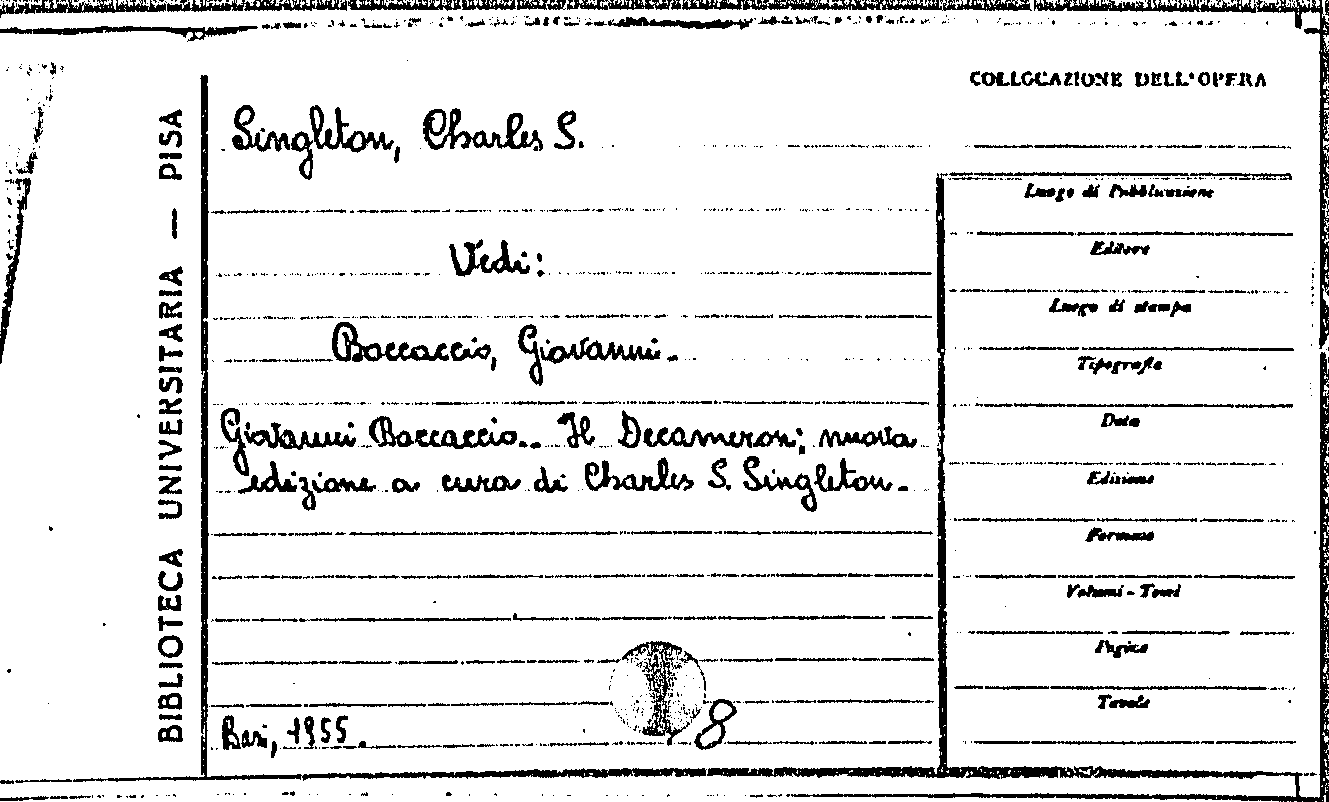 COLLOCAZIONE DELL'OPERA
BIBLIOTECA UNIVERSITARIA — PISA
Singleton, Charles S.
Vedi:
Boccaccio, Giovanni.
Giovanni Boccaccio.. Il Decameron; nuova
edizione a cura di Charles S. Singleton.
Bari, 1955.
8
Luogo di Pubblicazione
Editore
Luogo di stampa
Tipografia
Data
Edizione
Formato
Volumi - Tomi
Pagine
Tavole